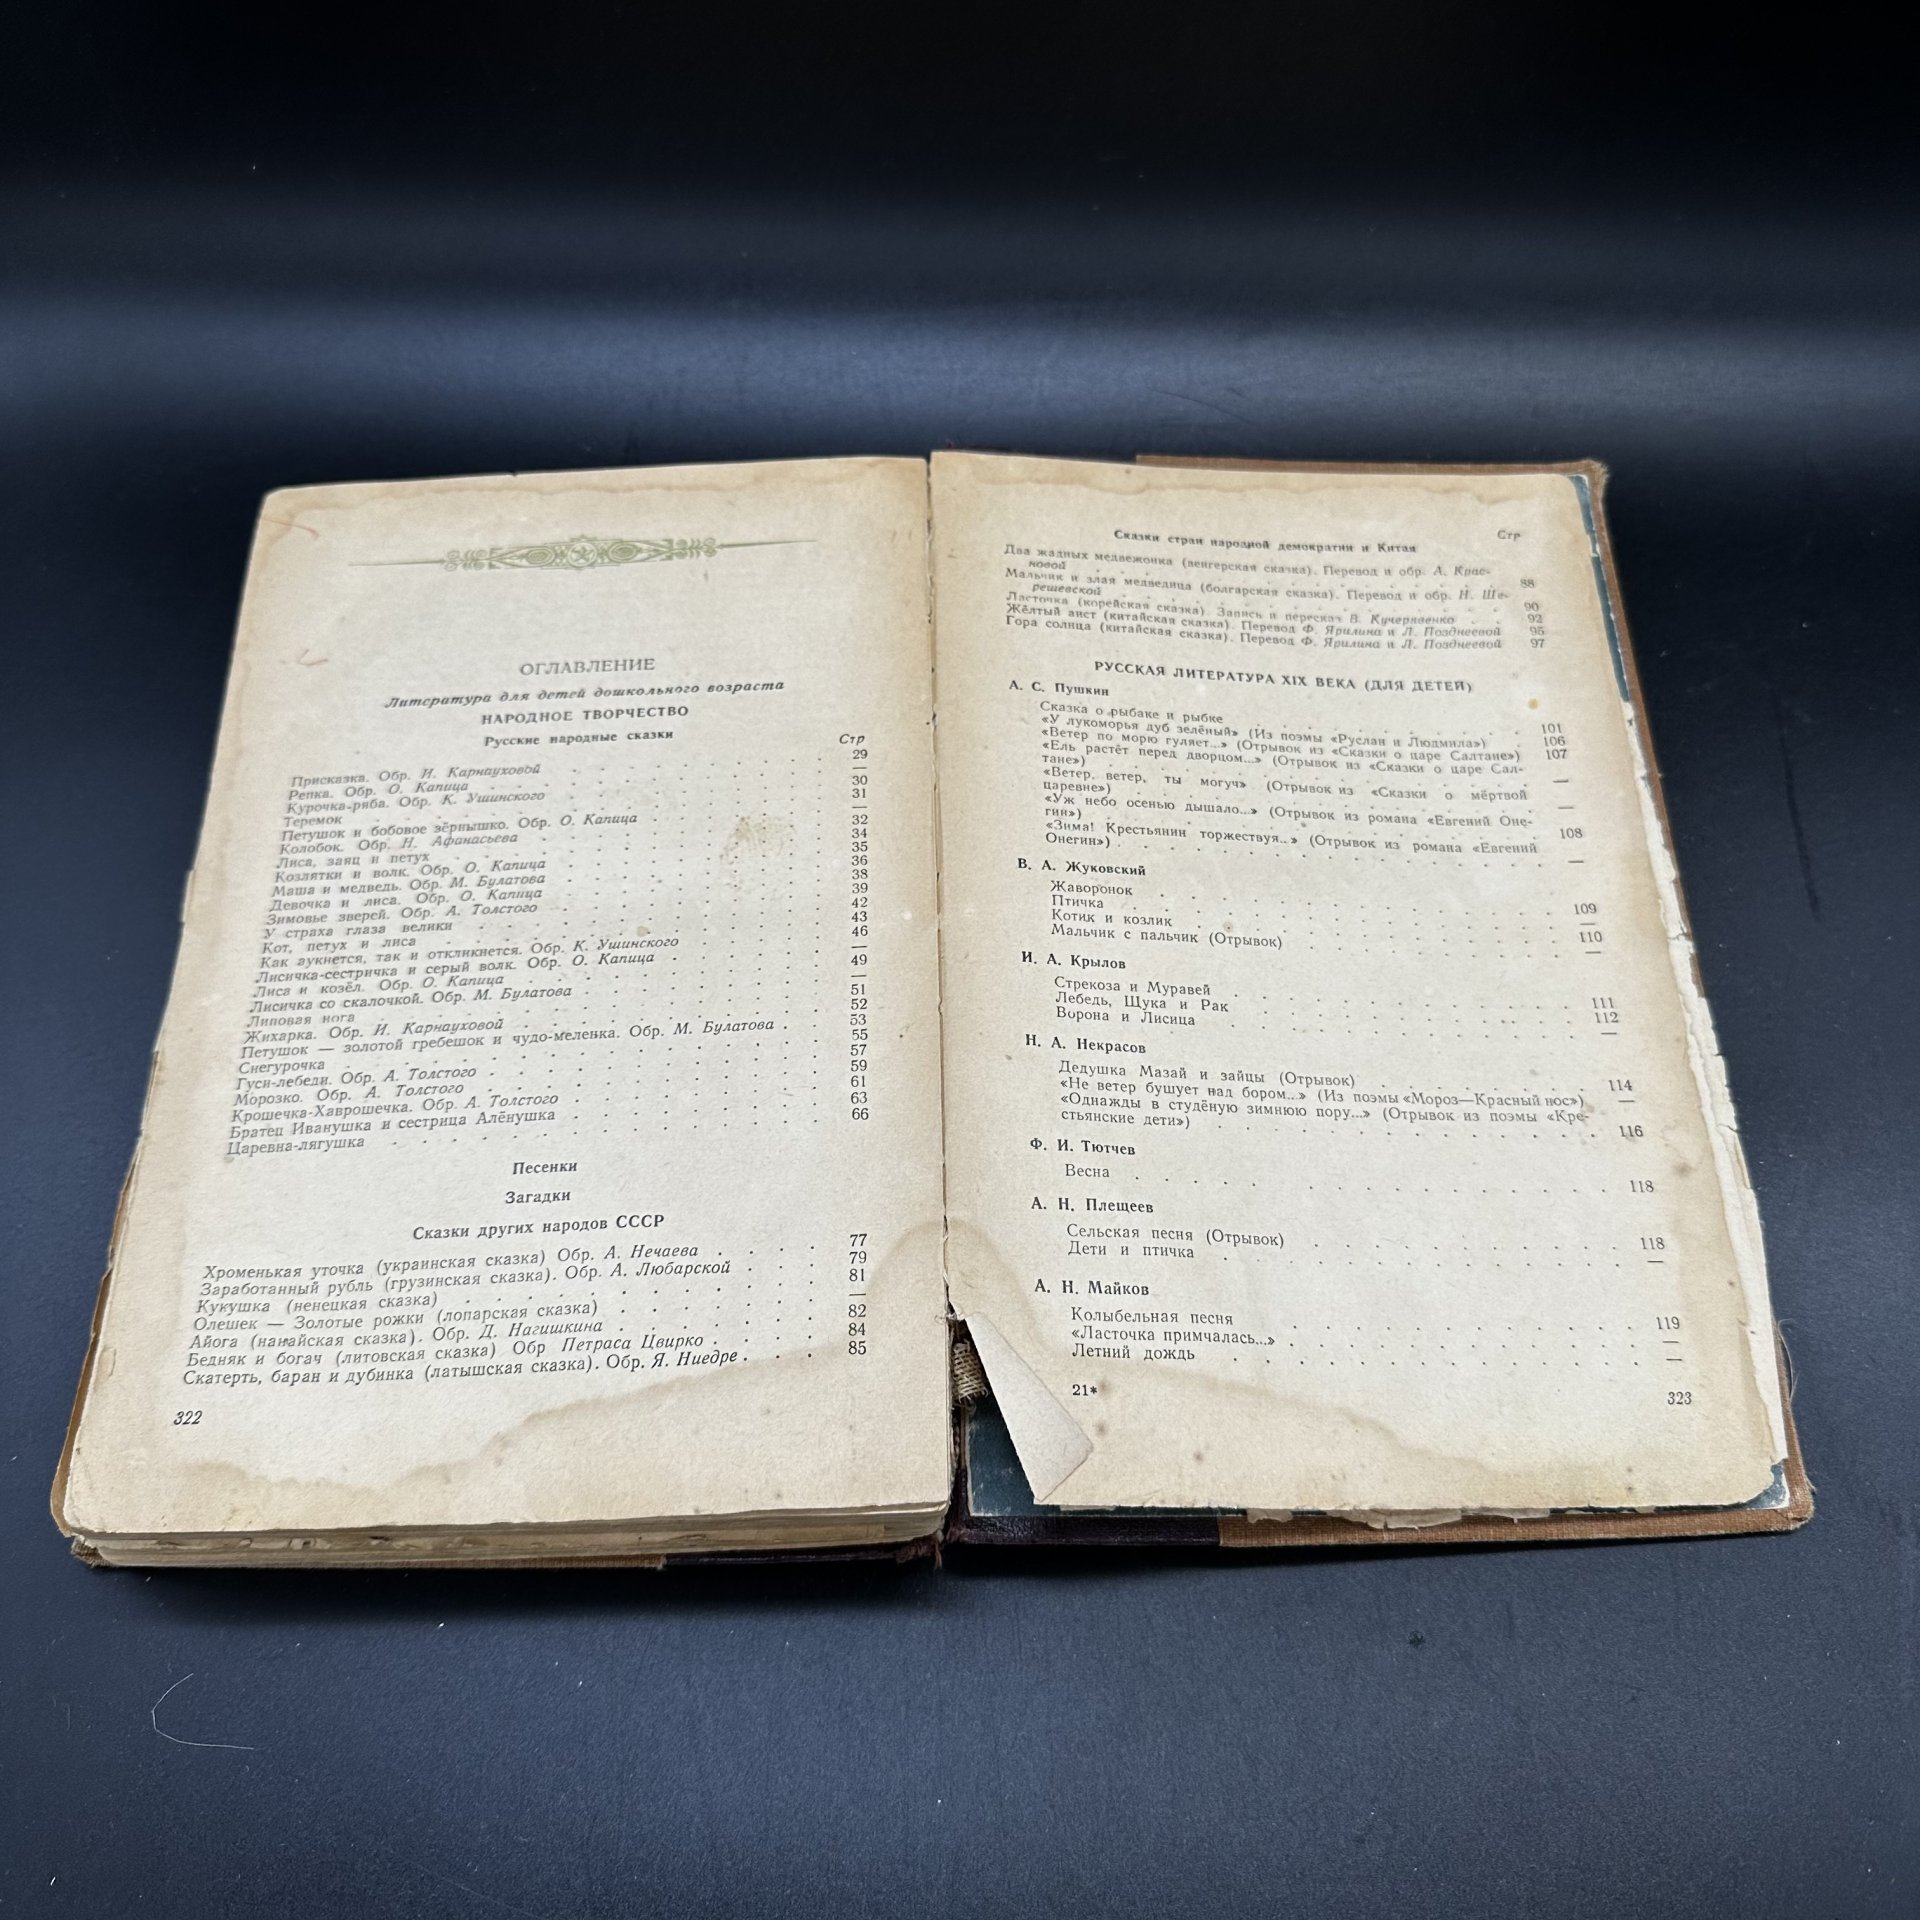 ОГЛАВЛЕНИЕ
Литература для детей дошкольного возраста
НАРОДНОЕ ТВОРЧЕСТВО
Русские народные сказки
Стр
Присказка. Обр. И. Карнауховой . . . 29
Репка. Обр. О. Капица . . . —
Курочка-ряба. Обр. К. Ушинского . . . 30
Теремок . . . 31
Петушок и бобовое зёрнышко. Обр. О. Капица . . . —
Колобок. Обр. Н. Афанасьева . . . 32
Лиса, заяц и петух . . . 34
Козлятки и волк. Обр. О. Капица . . . 35
Маша и медведь. Обр. М. Булатова . . . 36
Девочка и лиса. Обр. О. Капица . . . 38
Зимовье зверей. Обр. А. Толстого . . . 39
У страха глаза велики . . . 42
Кот, петух и лиса . . . 43
Как аукнется, так и откликнется. Обр. К. Ушинского . . . 46
Лисичка-сестричка и серый волк. Обр. О. Капица . . . —
Лиса и козёл. Обр. О. Капица . . . 49
Лисичка со скалочкой. Обр. М. Булатова . . . —
Липовая нога . . . 51
Жихарка. Обр. И. Карнауховой . . . 52
Петушок — золотой гребешок и чудо-меленка. Обр. М. Булатова . . . 53
Снегурочка . . . 55
Гуси-лебеди. Обр. А. Толстого . . . 57
Морозко. Обр. А. Толстого . . . 59
Крошечка-Хаврошечка. Обр. А. Толстого . . . 61
Братец Иванушка и сестрица Алёнушка . . . 63
Царевна-лягушка . . . 66
Песенки
Загадки
Сказки других народов СССР
Хроменькая уточка (украинская сказка) Обр. А. Нечаева . . . 77
Заработанный рубль (грузинская сказка). Обр. А. Любарской . . . 79
Кукушка (ненецкая сказка) . . . 81
Олешек — Золотые рожки (лопарская сказка) . . . —
Айога (нанайская сказка). Обр. Д. Нагишкина . . . 82
Бедняк и богач (литовская сказка) Обр Петраса Цвирко . . . 84
Скатерть, баран и дубинка (латышская сказка). Обр. Я. Ниедре . . . 85
322
Сказки стран народной демократии и Китая
Стр
Два жадных медвежонка (венгерская сказка). Перевод и обр. А. Крас-
новой . . . 88
Мальчик и злая медведица (болгарская сказка). Перевод и обр. Н. Ше-
решевской . . . 90
Ласточка (корейская сказка). Запись и пересказ В. Кучерявенко . . . 92
Жёлтый аист (китайская сказка). Перевод Ф. Ярилина и Л. Позднеевой 95
Гора солнца (китайская сказка). Перевод Ф. Ярилина и Л. Позднеевой 97
РУССКАЯ ЛИТЕРАТУРА XIX ВЕКА (ДЛЯ ДЕТЕЙ)
А. С. Пушкин
Сказка о рыбаке и рыбке . . . 101
«У лукоморья дуб зелёный» (Из поэмы «Руслан и Людмила») . 106
«Ветер по морю гуляет...» (Отрывок из «Сказки о царе Салтане») 107
«Ель растёт перед дворцом...» (Отрывок из «Сказки о царе Сал-
тане») . . . —
«Ветер, ветер, ты могуч» (Отрывок из «Сказки о мёртвой
царевне») . . . —
«Уж небо осенью дышало...» (Отрывок из романа «Евгений Оне-
гин») . . . 108
«Зима! Крестьянин торжествуя...» (Отрывок из романа «Евгений
Онегин») . . . —
В. А. Жуковский
Жаворонок . . . 109
Птичка . . . —
Котик и козлик . . . 110
Мальчик с пальчик (Отрывок) . . . —
И. А. Крылов
Стрекоза и Муравей . . . 111
Лебедь, Щука и Рак . . . 112
Ворона и Лисица . . . —
Н. А. Некрасов
Дедушка Мазай и зайцы (Отрывок) . . . 114
«Не ветер бушует над бором...» (Из поэмы «Мороз—Красный нос») —
«Однажды в студёную зимнюю пору...» (Отрывок из поэмы «Кре-
стьянские дети») . . . 116
Ф. И. Тютчев
Весна . . . 118
А. Н. Плещеев
Сельская песня (Отрывок) . . . 118
Дети и птичка . . . —
А. Н. Майков
Колыбельная песня . . . 119
«Ласточка примчалась...» . . . —
Летний дождь . . . —
21*
323